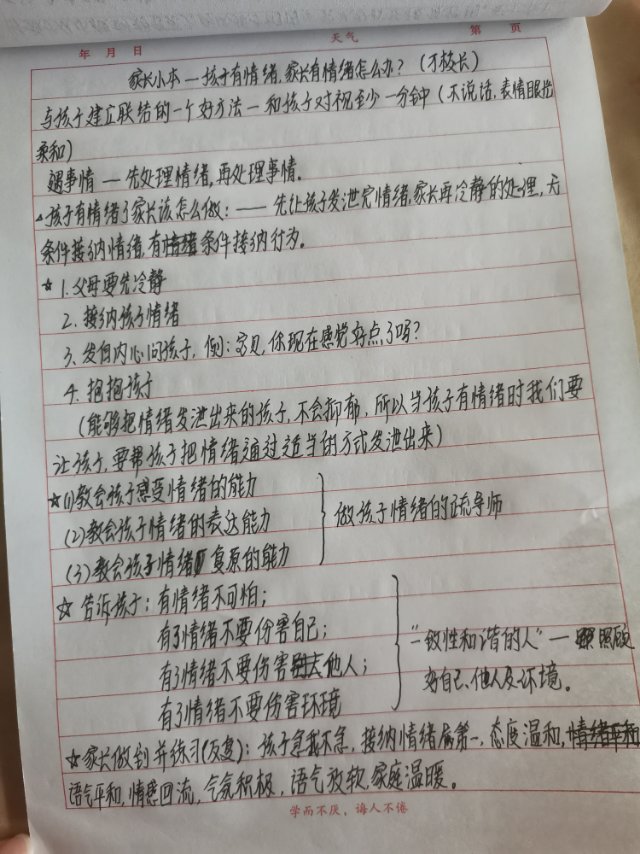 年 月 日 天气 第 页
家长小本 — 孩子有情绪,家长有情绪怎么办?
与孩子建立联结的一个好方法 — 和孩子对视至少一分钟 (不说话,表情眼光
柔和)
遇事情 — 先处理情绪,再处理事情。
孩子有情绪了家长该怎么做: —— 先让孩子发泄完情绪,家长再冷静的处理,无
条件接纳情绪,有条件接纳行为。
☆ 1. 父母要先冷静
2. 接纳孩子情绪
3. 发自内心问孩子,例:宝贝,你现在感觉好点了吗?
4. 抱抱孩子
(能够把情绪发泄出来的孩子,不会抑郁,所以当孩子有情绪时我们要
让孩子,要帮孩子把情绪通过适当的方式发泄出来)
☆ (1) 教会孩子感受情绪的能力
(2) 教会孩子情绪的表达能力
(3) 教会孩子情绪复原的能力
做孩子情绪的疏导师
☆ 告诉孩子:有情绪不可怕;
有了情绪不要伤害自己;
有了情绪不要伤害他人;
有了情绪不要伤害环境
“一致性和谐的人” — 照顾
好自己、他人及环境。
☆ 家长做到并练习(反复):孩子急我不急,接纳情绪属第一,态度温和,
语气平和,情感回流,气氛积极,语气放软,家庭温暖。
学而不厌,诲人不倦